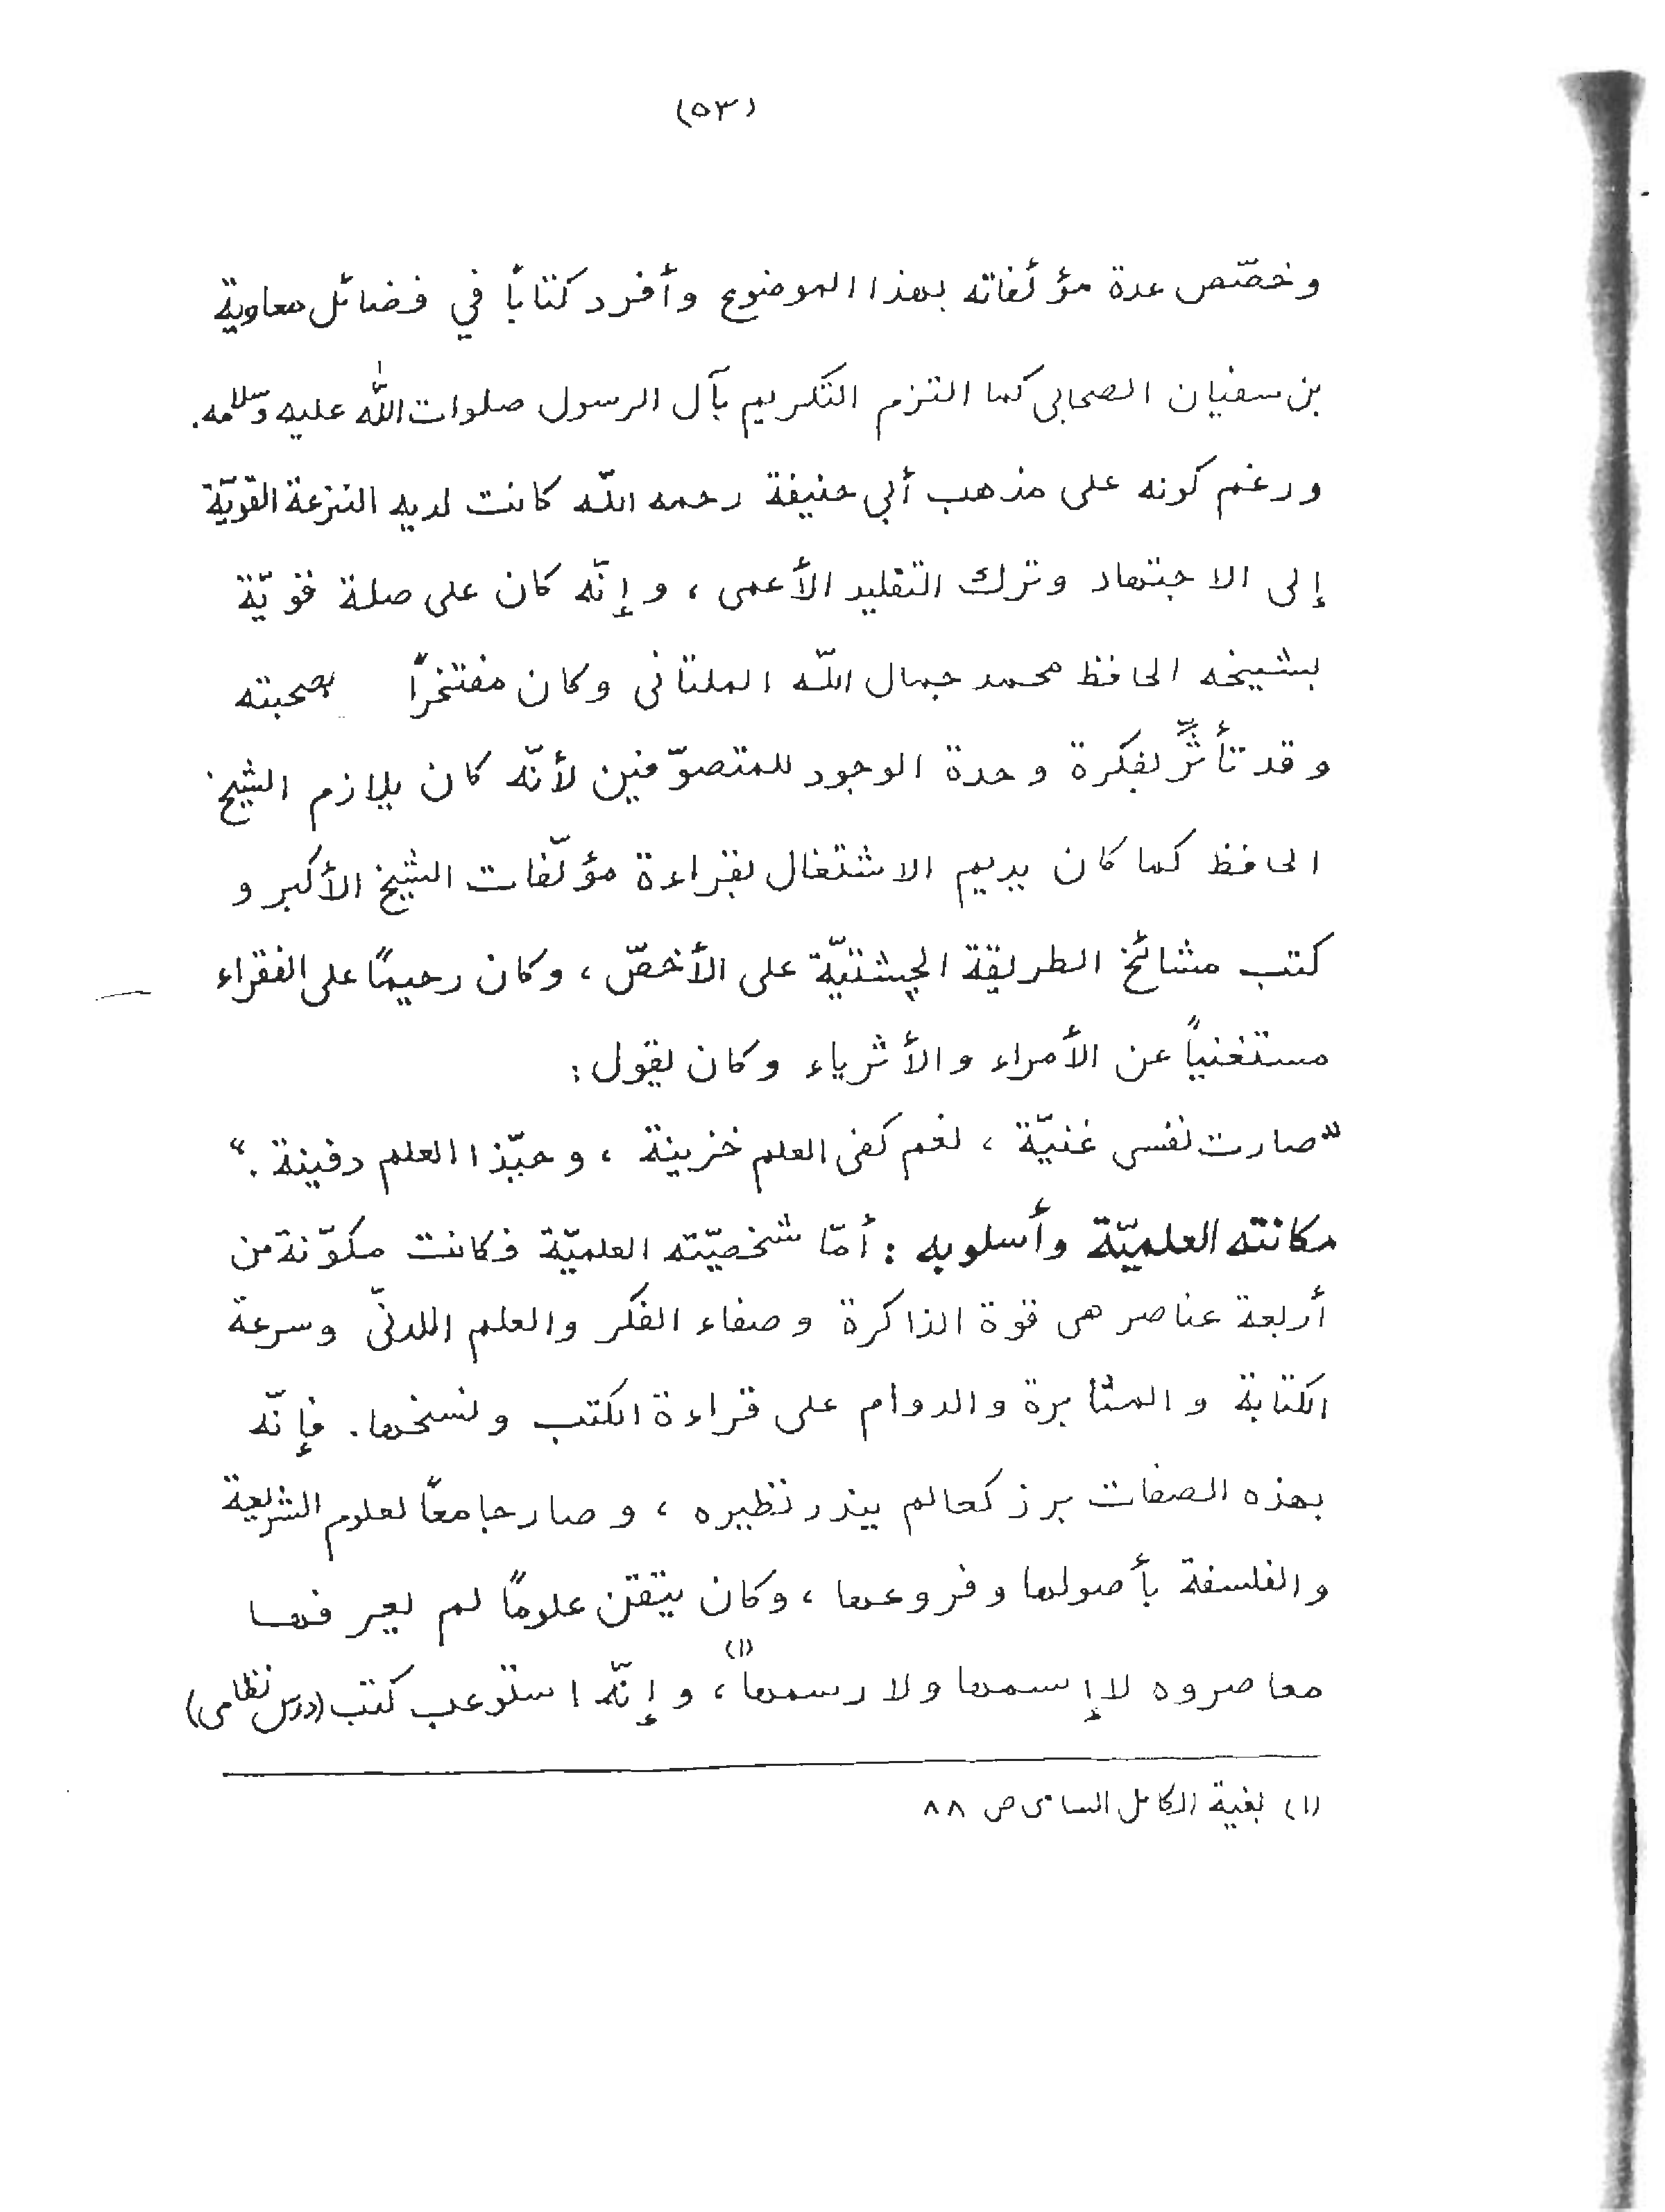 (٥٣)
وخصّص عدة مؤلفاته بهذا الموضوع وأفرد كتاباً في فضائل معاوية
بن سفيان الصحابى كما التزم التكريم بآل الرسول صلوات اللّٰه عليه وسلامه.
ورغم كونه على مذهب أبي حنيفة رحمه اللّه كانت لديه النزعة القويّة
إلى الاجتهاد وترك التقليد الأعمى ، وإنّه كان على صلة قويّة
بشيخه الحافظ محمد جمال اللّه الملتانى وكان مفتخراً بصحبته
وقد تأثّر بفكرة وحدة الوجود للمتصوّفين لأنّه كان يلازم الشيخ
الحافظ كما كان يديم الاشتغال بقراءة مؤلّفات الشيخ الأكبر و
كتب مشائخ الطريقة الچشتيّة على الأخصّ ، وكان رحيمًا على الفقراء
مستغنياً عن الأمراء والأثرياء وكان يقول :
"صارت نفسى غنيّة ، نعم كفى العلم خزينة ، وحبّذا العلم دفينة ."
مكانته العلميّة وأسلوبه : أمّا شخصيّته العلميّة فكانت مكوّنة من
أربعة عناصر هى قوة الذاكرة وصفاء الفكر والعلم اللدنّى وسرعة
الكتابة والمثابرة والدوام على قراءة الكتب ونسخها. فإنّه
بهذه الصفات برز كعالم يندر نظيره ، وصار جامعًا لعلوم الشريعة
والفلسفة بأصولها وفروعها ، وكان يتقن علومًا لم يعرفها
معاصروه لا إسمها ولا رسمهاً(١) ، وإنّه استوعب كتب (درس نظامى)
(١) بغية الكامل السامى ص ٨٨